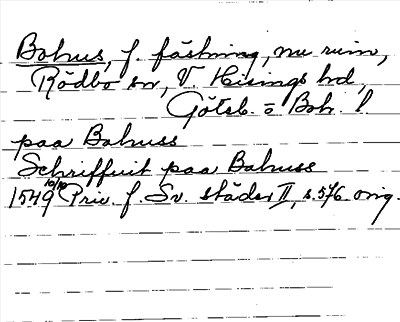 Bohus, f. fästning, nu ruin,
Rödbo sn, V. Hisings hd,
Göteb. o Boh. l.
paa Bahuss
Schriffuit paa Bahuss
1549 10/10 Priv. f. Sv. städer II, s. 576 orig.